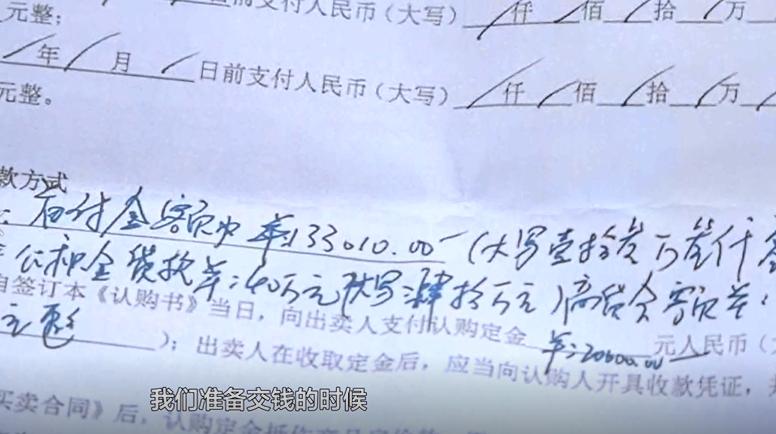 元整;
前支付人民币(大写)/仟/佰/拾/万
/年/月/日前支付人民币(大写)/仟/佰/拾/万
元整。
款方式
首付金额为 ¥:133010.00 (大写壹拾叁万叁仟零
公积金贷款 ¥:40万元 (大写:肆拾万元)商贷金额 ¥:
自签订本《认购书》当日,向出卖人支付认购定金 ¥:20000.00 元人民币(大
);出卖人在收取定金后,应当向认购人开具收款凭证,并
买卖合同》后,认购定金抵作商品房价款
我们准备交钱的时候